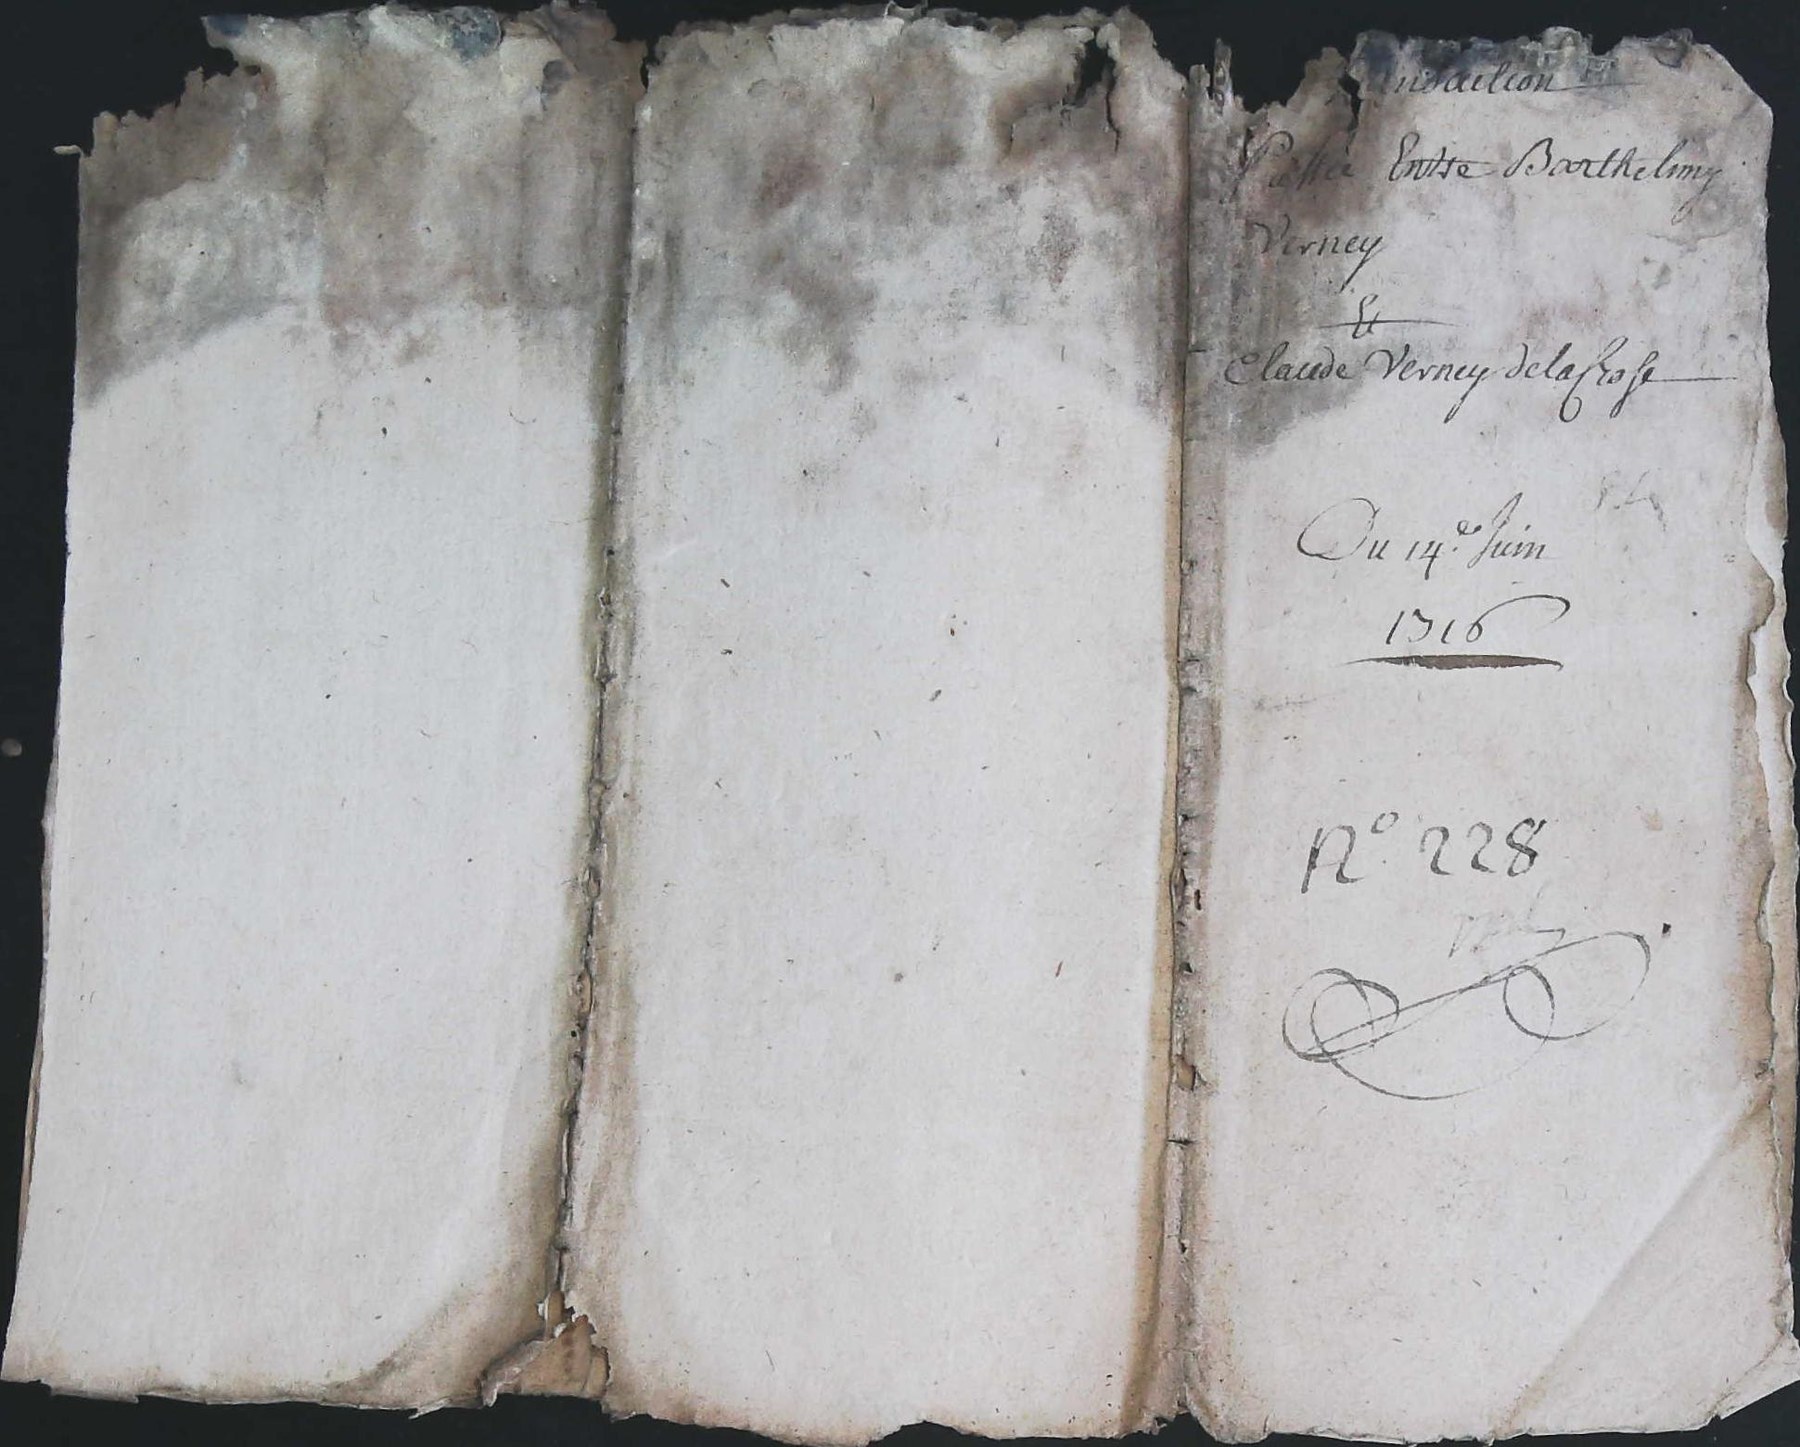 ansaction
Passée Entre Barthelmy
Verney
Et
Claude Verney dela Crose
Du 14.e Juin
1716
N.o 228